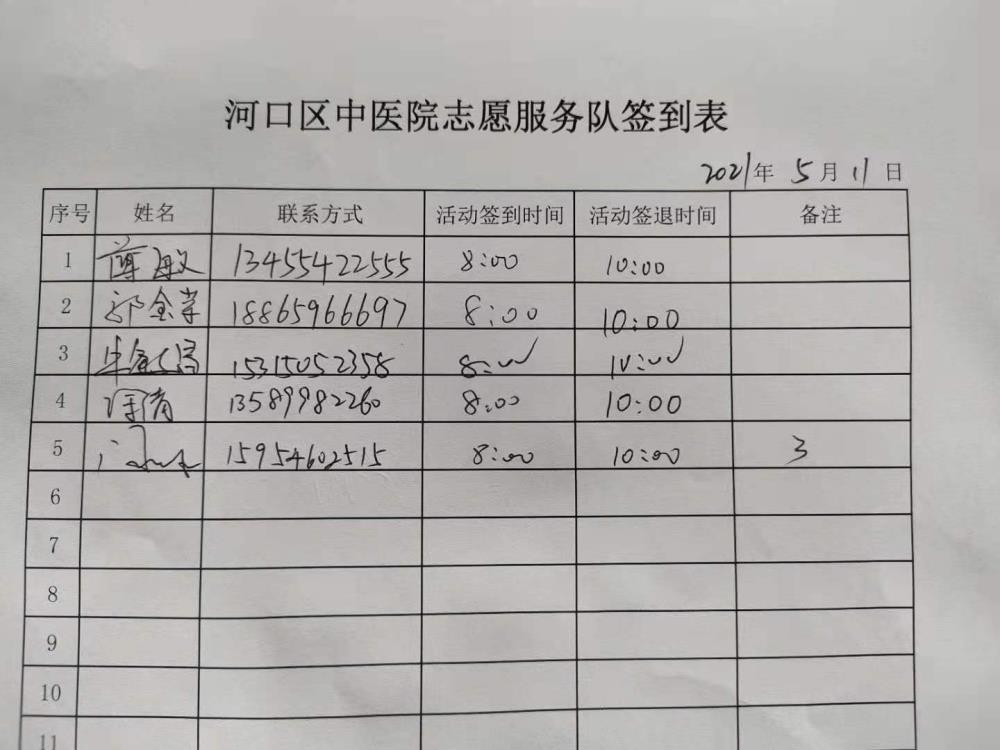 河口区中医院志愿服务队签到表
2021年 5月 11日
序号 姓名 联系方式 活动签到时间 活动签退时间 备注
1 薄敏 13455422555 8:00 10:00
2 18865966697 8:00 10:00
3 15315052358 8:00 10:00
4 13589982260 8:00 10:00
5 15954602515 8:00 10:00 3
6
7
8
9
10
11